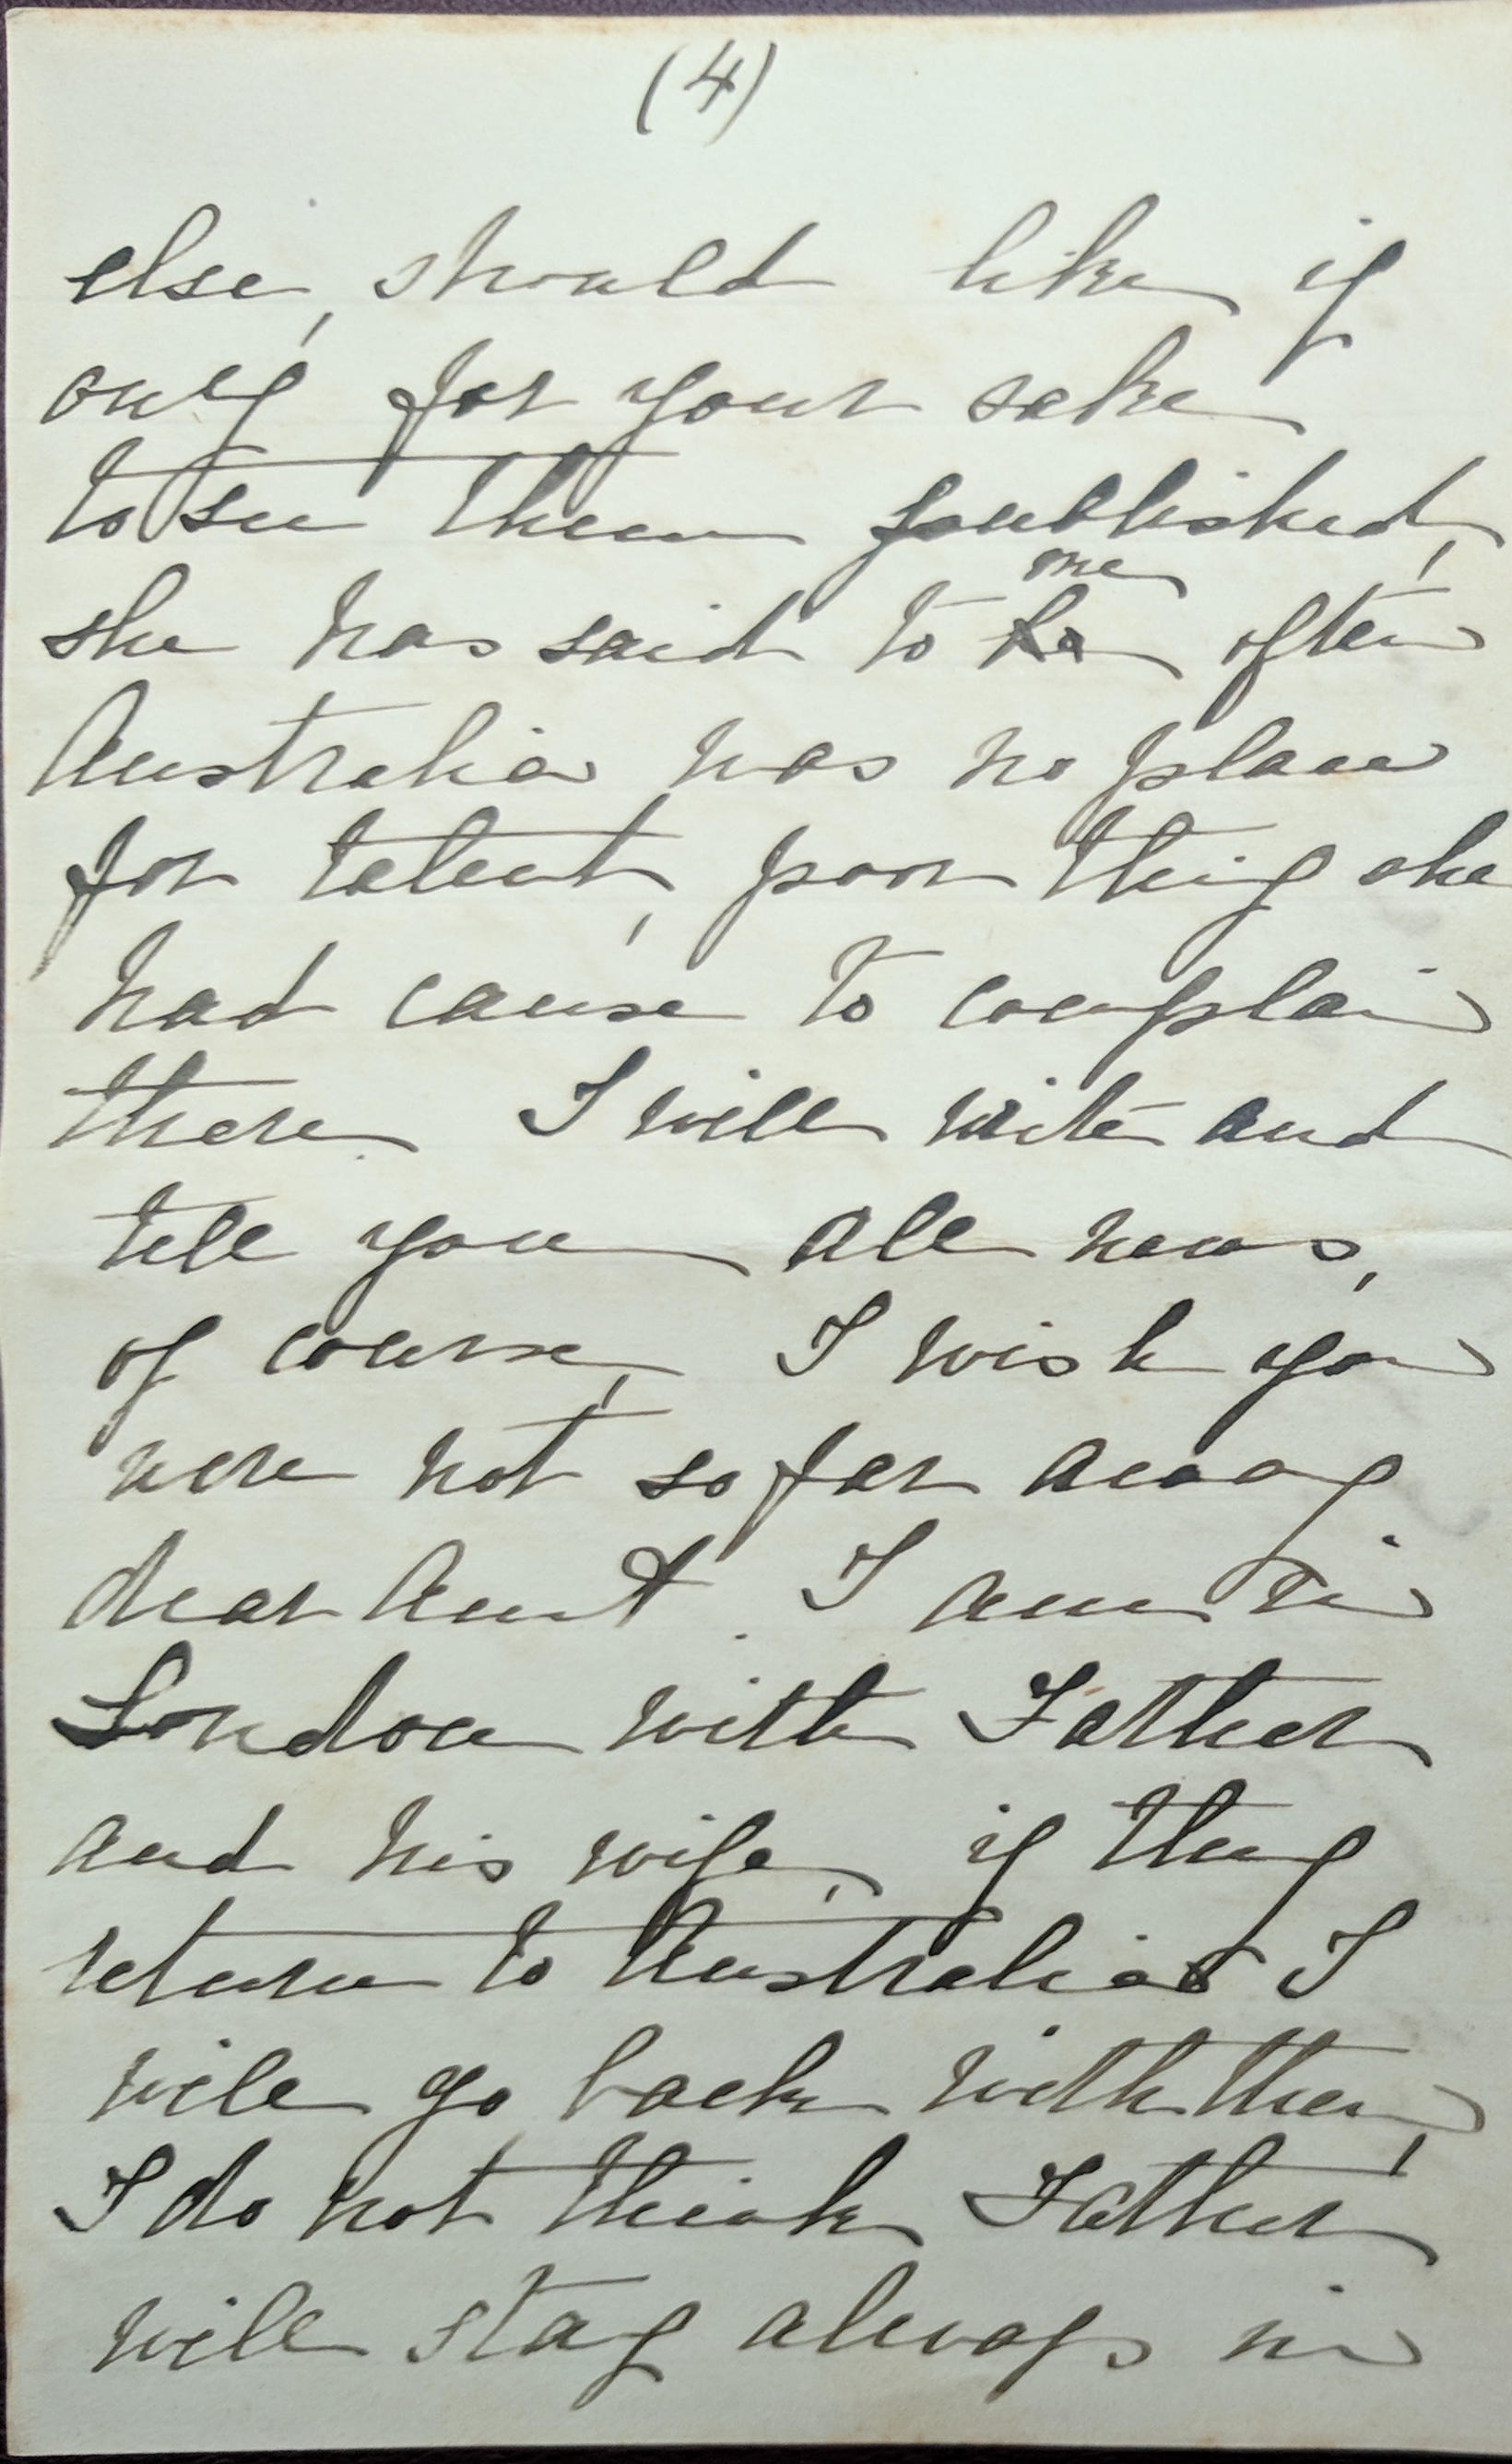 (4)
else, should like if
only for your sake
to see them published,
she has said to me often
Australia was no place
for talent, poor thing she
had cause to complain
there. I will write and
tell you all news,
of course, I wish you
were not so far away
dear Aunt. I am in
London with Father
and his wife, if they
return to Australia I
will go back with them,
I do not think Father
will stay always in